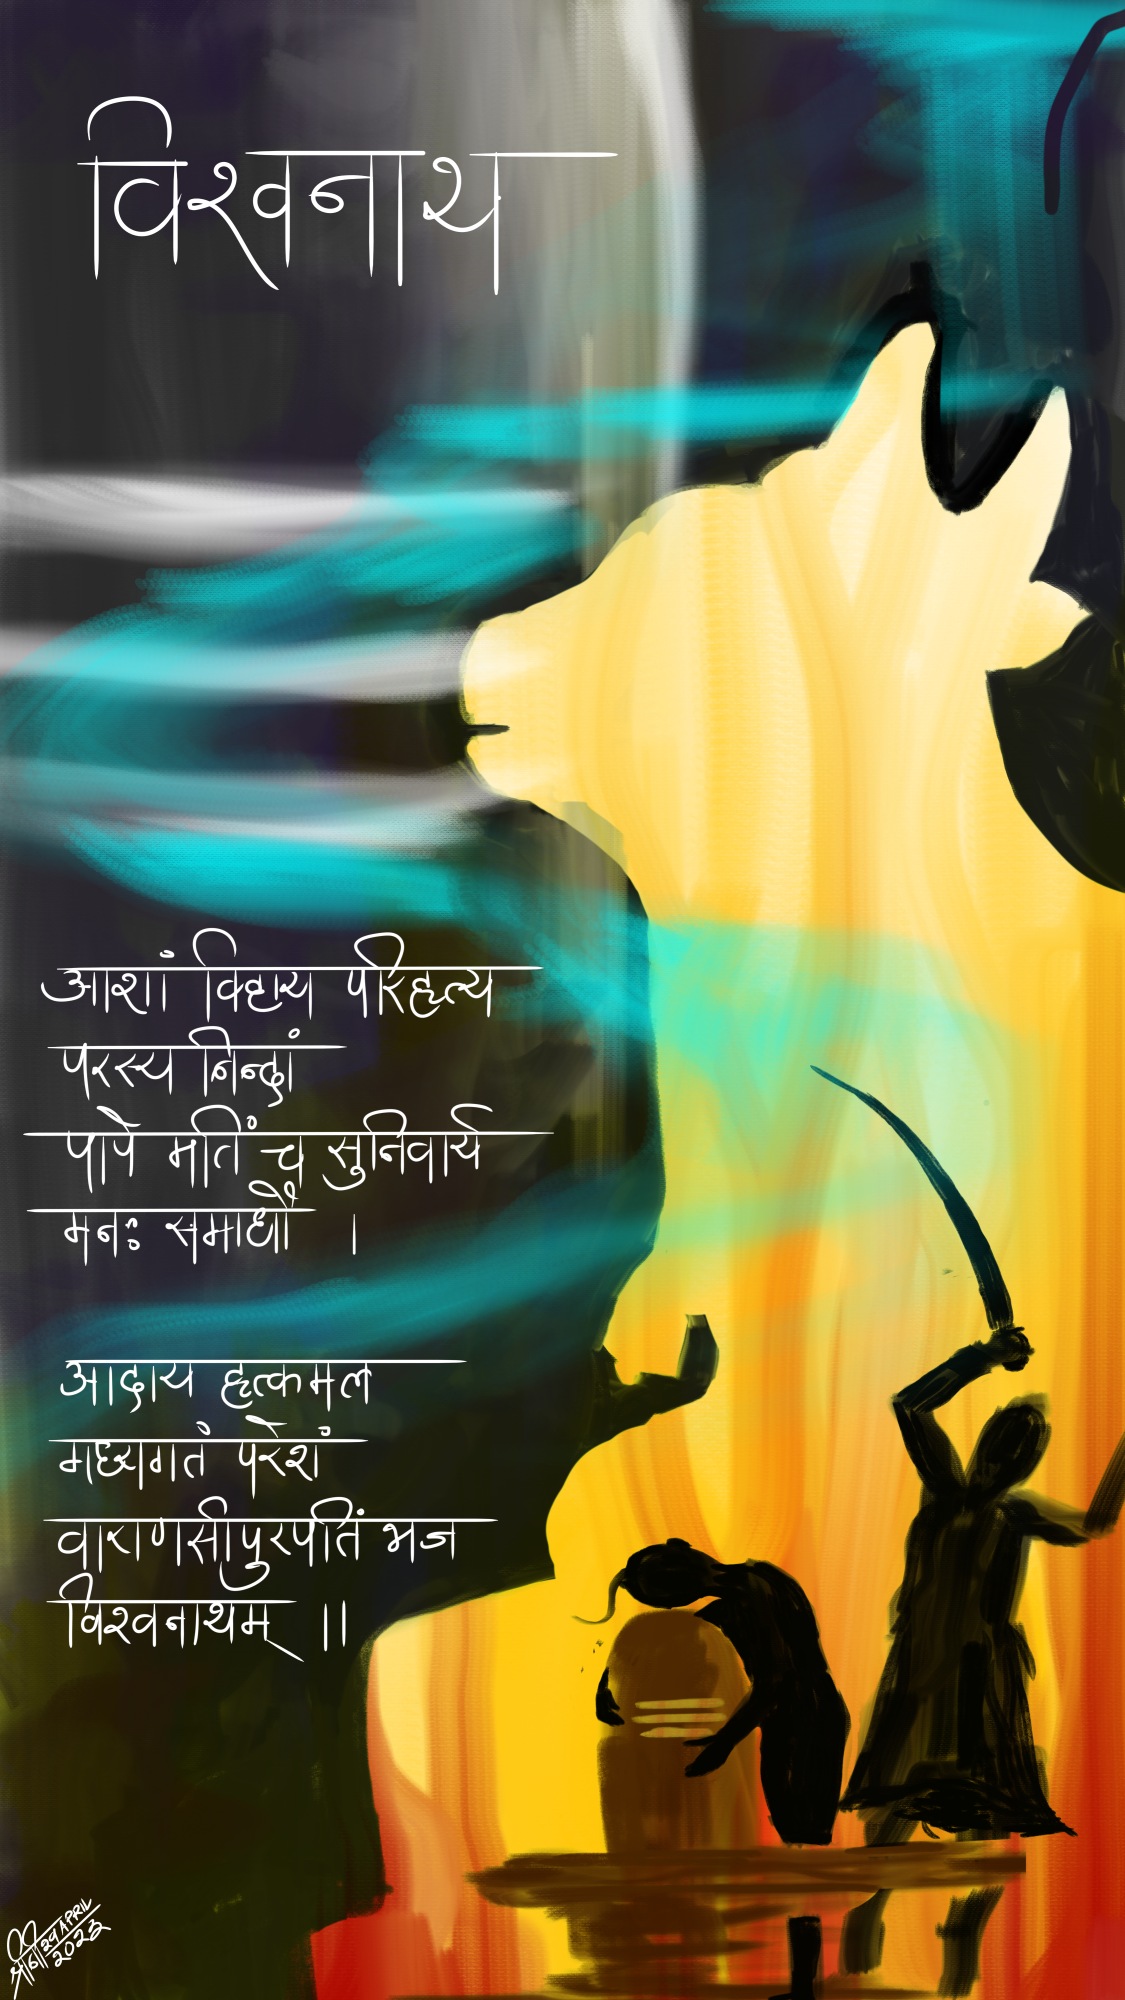 विश्वनाथ
आशां विहाय परिहृत्य
परस्य निन्दां
पापे मतिं च सुनिवार्य
मनः समाधौ ।
आदाय हृत्कमल
मध्यगतं परेशं
वाराणसीपुरपतिं भज
विश्वनाथम् ।।
29 APRIL
2023